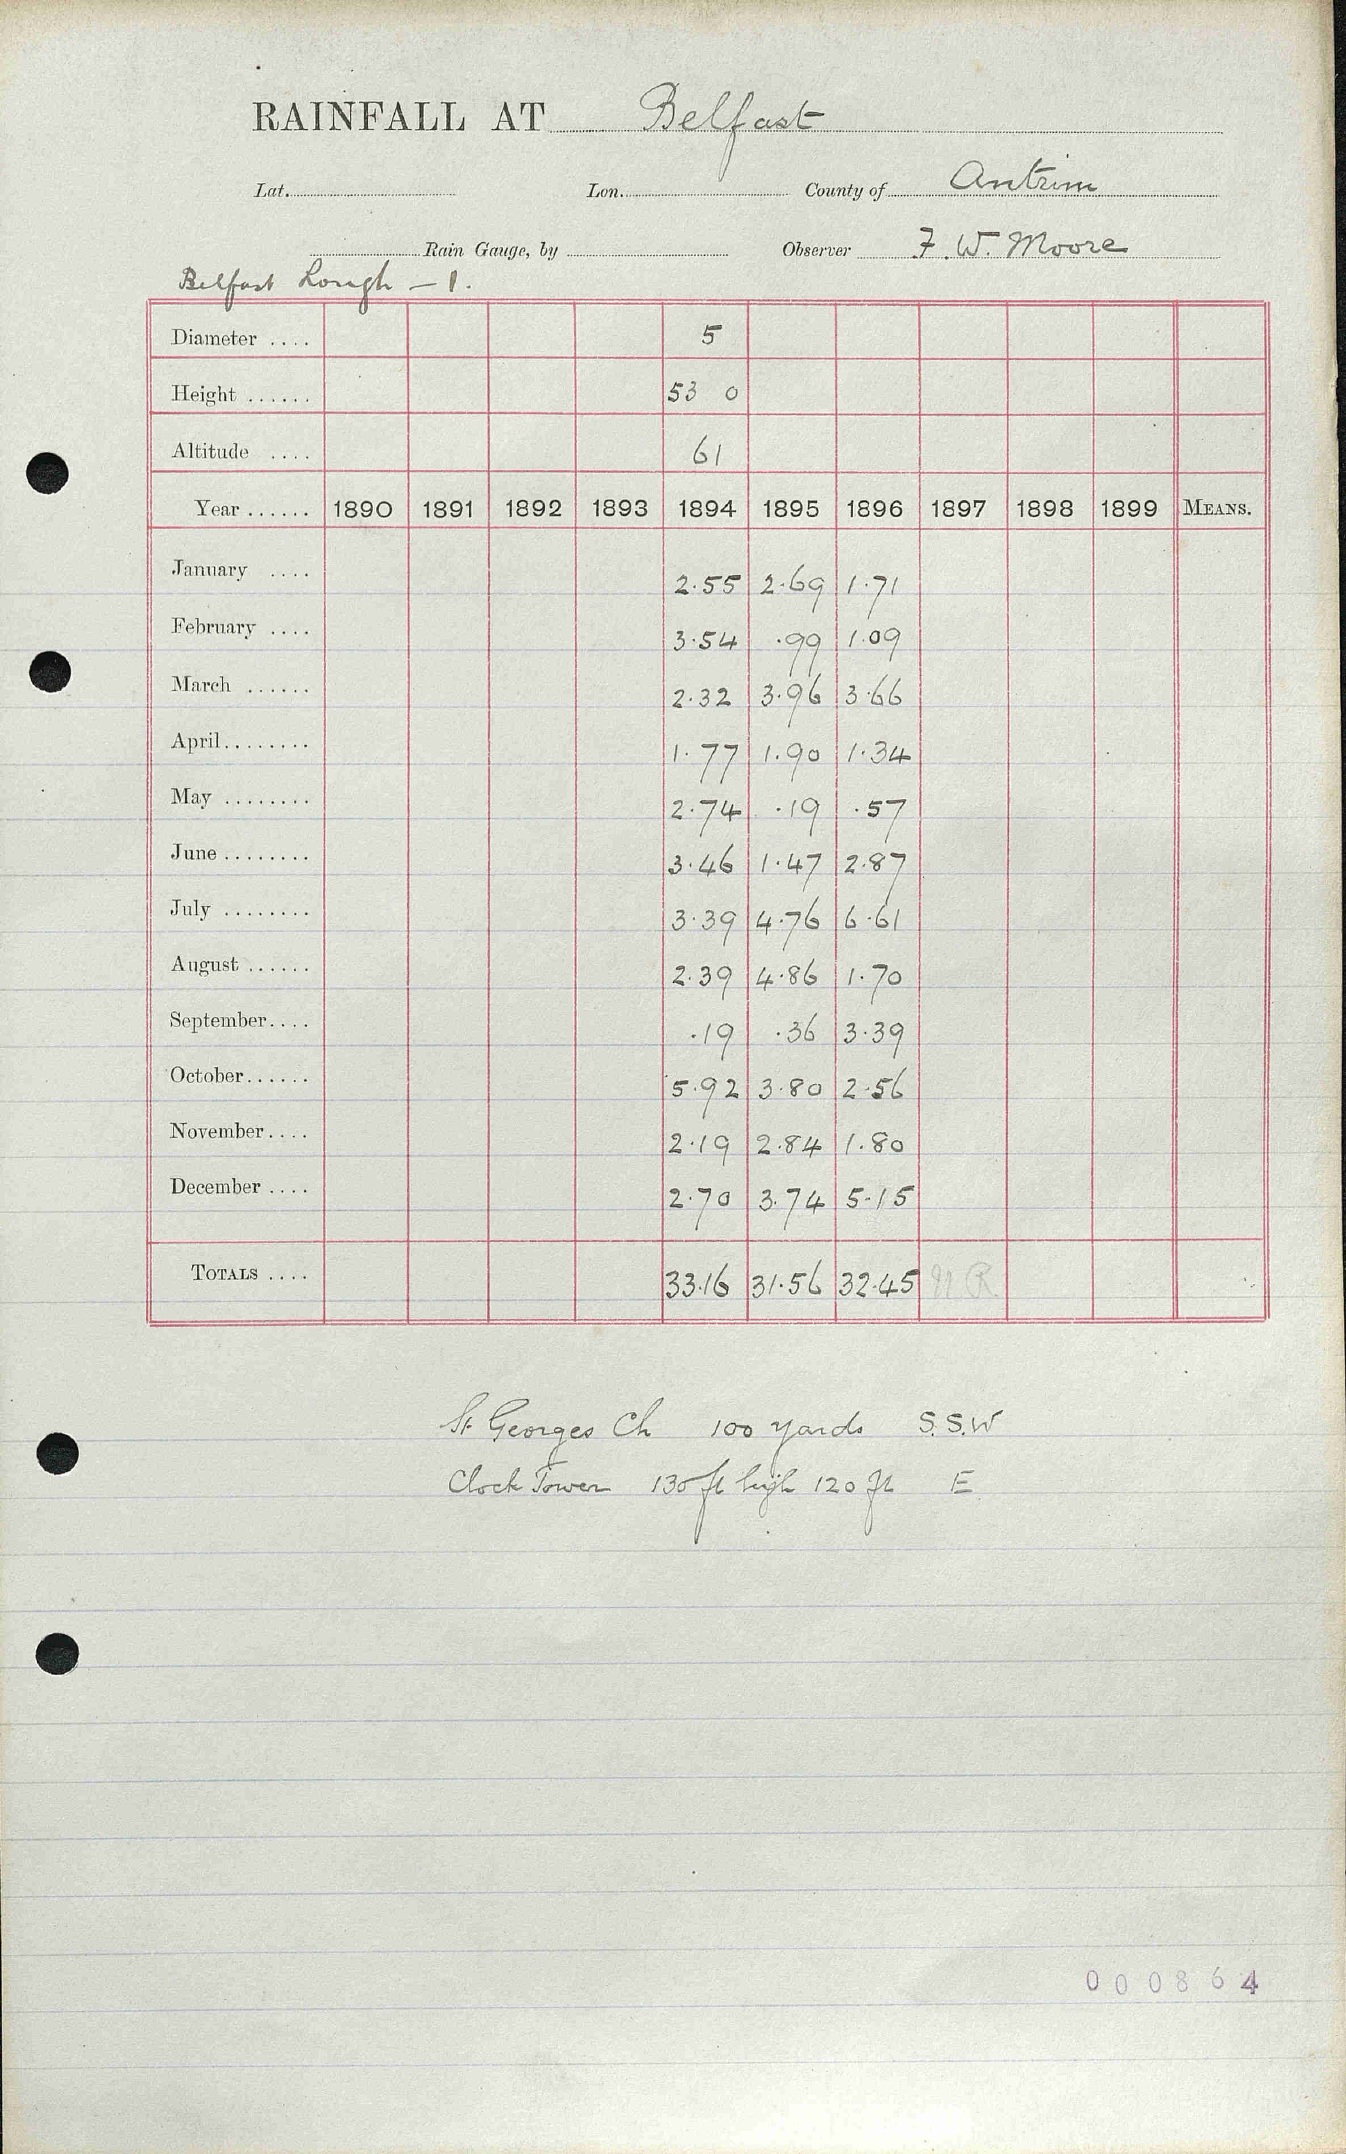 RAINFALL AT Belfast
Lat. Lon. County of Antrim
Rain Gauge, by Observer F. W. Moore
Belfast Lough - 1.
Diameter .... 5
Height ...... 53 0
Altitude .... 61
Year ...... 1890 1891 1892 1893 1894 1895 1896 1897 1898 1899 MEANS.
January .... 2.55 2.69 1.71
February .... 3.54 .99 1.09
March ...... 2.32 3.96 3.66
April........ 1.77 1.90 1.34
May ........ 2.74 .19 .57
June ........ 3.46 1.47 2.87
July ........ 3.39 4.76 6.61
August ...... 2.39 4.86 1.70
September.... .19 .36 3.39
October...... 5.92 3.80 2.56
November.... 2.19 2.84 1.80
December .... 2.70 3.74 5.15
TOTALS .... 33.16 31.56 32.45 N R
St Georges Ch 100 yards S.S.W
Clock Tower 130 ft high 120 ft E
000864